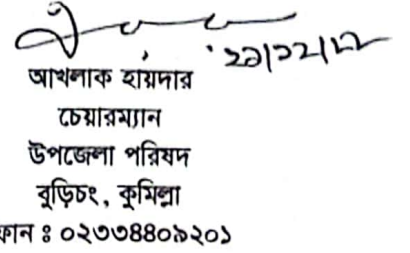 আখলাক হায়দার
চেয়ারম্যান
উপজেলা পরিষদ
বুড়িচং, কুমিল্লা
ফোন ঃ ০২৩৩৪৪০৯২০১